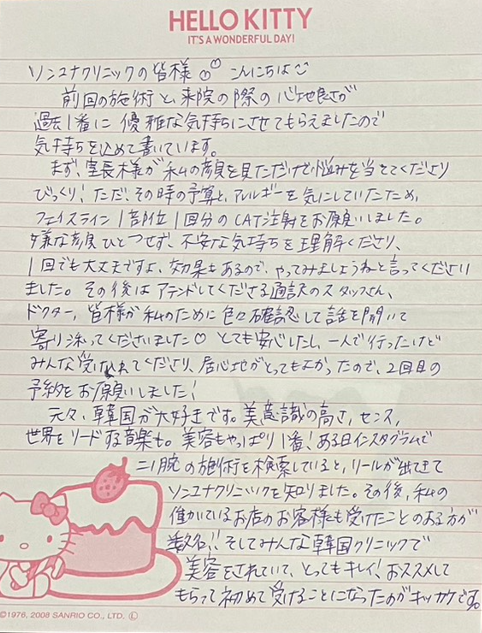 HELLO KITTY
IT'S A WONDERFUL DAY!
ソンユナクリニックの皆様 こんにちは
前回の施術と、来院の際の心地良さが
過去1番に優雅な気持ちにさせてもらえましたので
気持ちを込めて書いています。
まず、室長様が私の顔を見ただけで悩みを当ててくださり
びっくり! ただ、その時の予算と、アレルギーを気にしていたため、
フェイスライン1部位1回分のCAT注射をお願いしました。
嫌な顔ひとつせず、不安な気持ちを理解くださり、
1回でも大丈夫ですよ、効果もあるので、やってみましょうねと言ってくださり
ました。その後はアテンドしてくださる通訳のスタッフさん、
ドクター、皆様が私のために色々確認して話を聞いて
寄り添ってくださいました♡ とても安心したし、一人で行ったけど
みんな受け入れてくださり、居心地がとってもよかったので、2回目の
予約をお願いしました!
元々、韓国が大好きです。美意識の高さ、センス、
世界をリードする音楽も。美容もやっぱり1番! ある日インスタグラムで
二の腕の施術を検索していると、リールが出てきて
ソンユナクリニックを知りました。その後、私の
働いているお店のお客様も受けたことのある方が
数名!! そしてみんな韓国クリニックで
美容をされていて、とってもキレイ! おススメして
もらって初めて受けることになったのがキッカケです。
©1976, 2008 SANRIO CO., LTD. Ⓛ